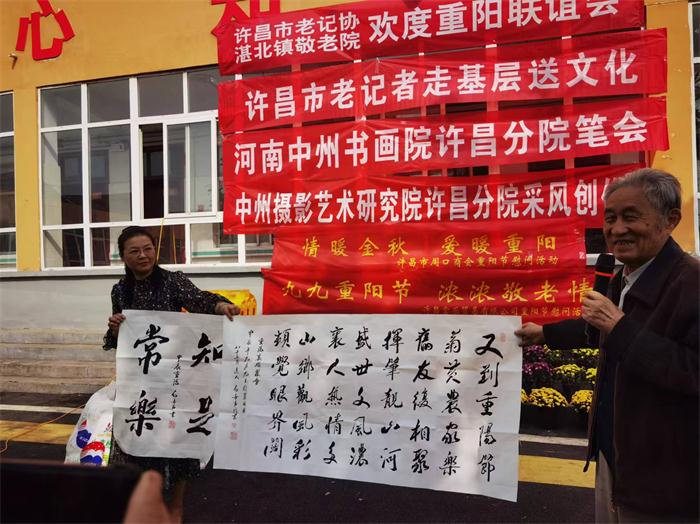 心 知
许昌市老记协
湛北镇敬老院 欢度重阳联谊会
许昌市老记者走基层送文化
河南中州书画院许昌分院笔会
中州摄影艺术研究院许昌分院采风创
情暖金秋 爱暖重阳
许昌市周口商会重阳节慰问活动
九九重阳节 浓浓敬老情
知足
常樂
又到重陽節
菊黄農家樂
舊友復相聚
揮筆觀山河
盛世文風濃
襄人熱情多
山鄉觀風彩
頓覺眼界闊